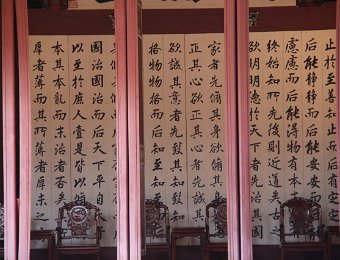 止於至善知止而后有定定
后能靜靜而后能安安而后
慮慮而后能得物有本
終始知所先後則近道矣古
欲明明德於天下者先治其國
家者先脩其身欲脩其身
正其心欲正其心者先誠其
欲誠其意者先致其知
格物物格而后知至
國治國治而后天下平自天子
以至於庶人壹是皆以脩
本其本亂而末治者否矣
厚者薄而其所薄者厚未之